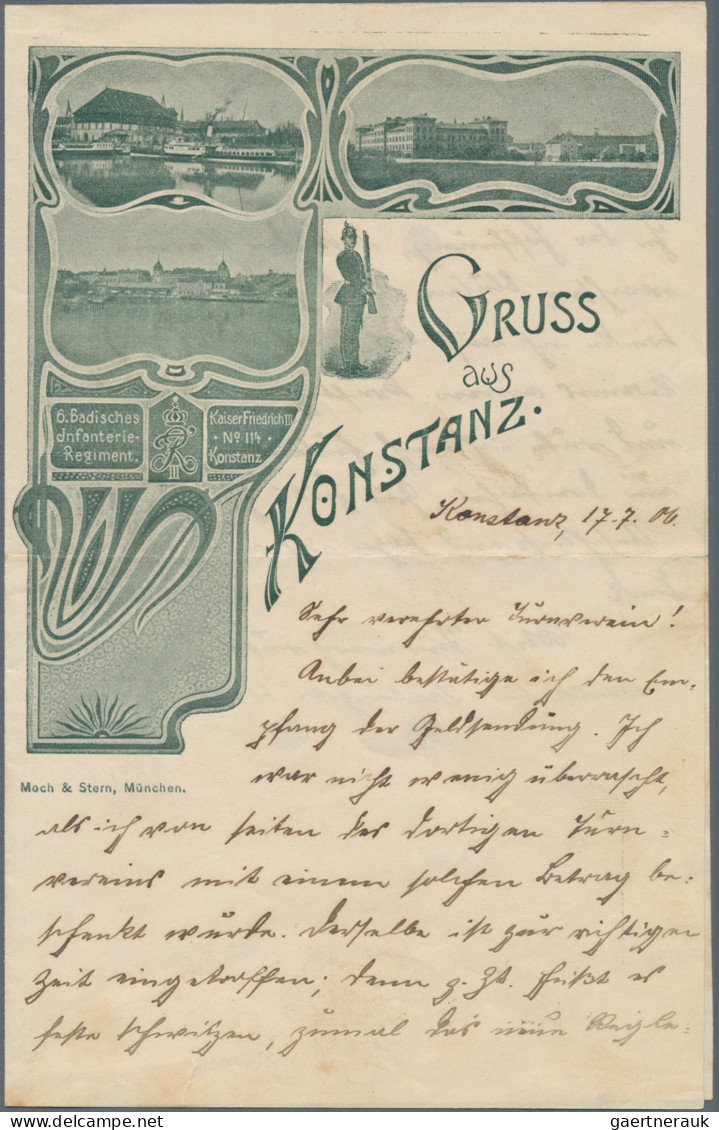 6. Badisches
Infanterie-
Regiment.
Kaiser Friedrich III
• No 114 •
Konstanz
III
GRUSS
aus
KONSTANZ.
Konstanz, 17.7.06.
Sehr verehrter Turnverein!
Anbei bestätige ich den Em-
pfang der Geldsendung. Ich
war nicht wenig überrascht,
als ich von seiten des dortigen Turn-
vereins mit einem solchen Betrag be-
schenkt wurde. Derselbe ist zur richtigen
Zeit eingetroffen; denn z. Zt. heißt es
feste schwitzen, zumal das neue Regle-
Moch & Stern, München.
gaertnerauk